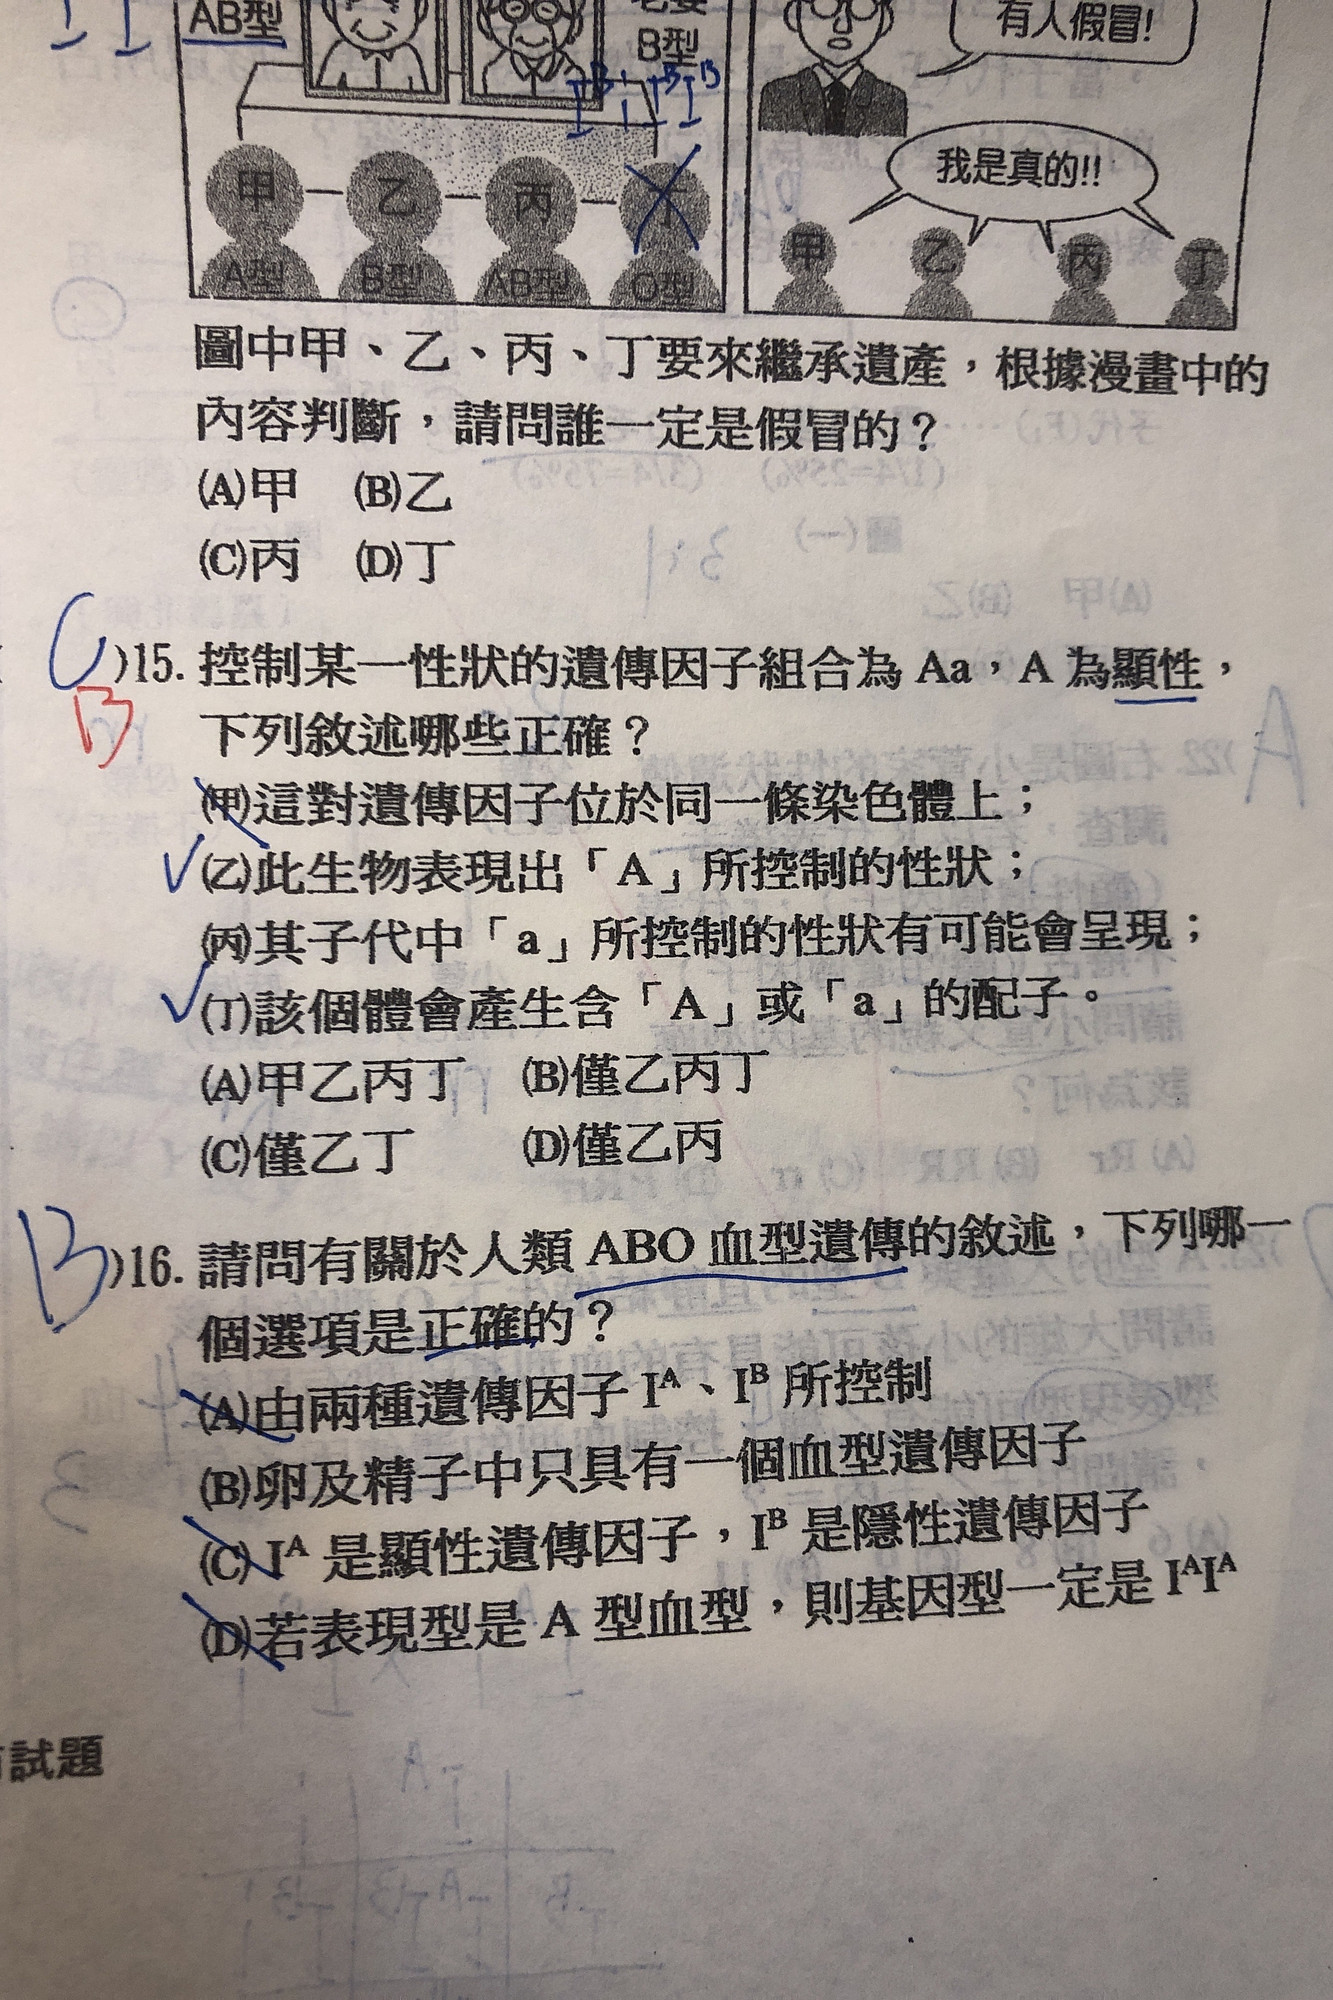 AB型
B型
有人假冒!
I^B i I^B I^B
我是真的!!
甲 乙 丙 丁
A型 B型 AB型 O型
甲 乙 丙 丁
圖中甲、乙、丙、丁要來繼承遺產，根據漫畫中的
內容判斷，請問誰一定是假冒的？
(A)甲 (B)乙
(C)丙 (D)丁
C )15. 控制某一性狀的遺傳因子組合為 Aa，A 為顯性，
B
下列敘述哪些正確？
(甲)這對遺傳因子位於同一條染色體上；
(乙)此生物表現出「A」所控制的性狀；
(丙)其子代中「a」所控制的性狀有可能會呈現；
(丁)該個體會產生含「A」或「a」的配子。
(A)甲乙丙丁 (B)僅乙丙丁
(C)僅乙丁 (D)僅乙丙
B )16. 請問有關於人類 ABO 血型遺傳的敘述，下列哪一
個選項是正確的？
(A)由兩種遺傳因子 I^A、I^B 所控制
(B)卵及精子中只具有一個血型遺傳因子
(C) I^A 是顯性遺傳因子，I^B 是隱性遺傳因子
(D)若表現型是 A 型血型，則基因型一定是 I^AI^A
試題